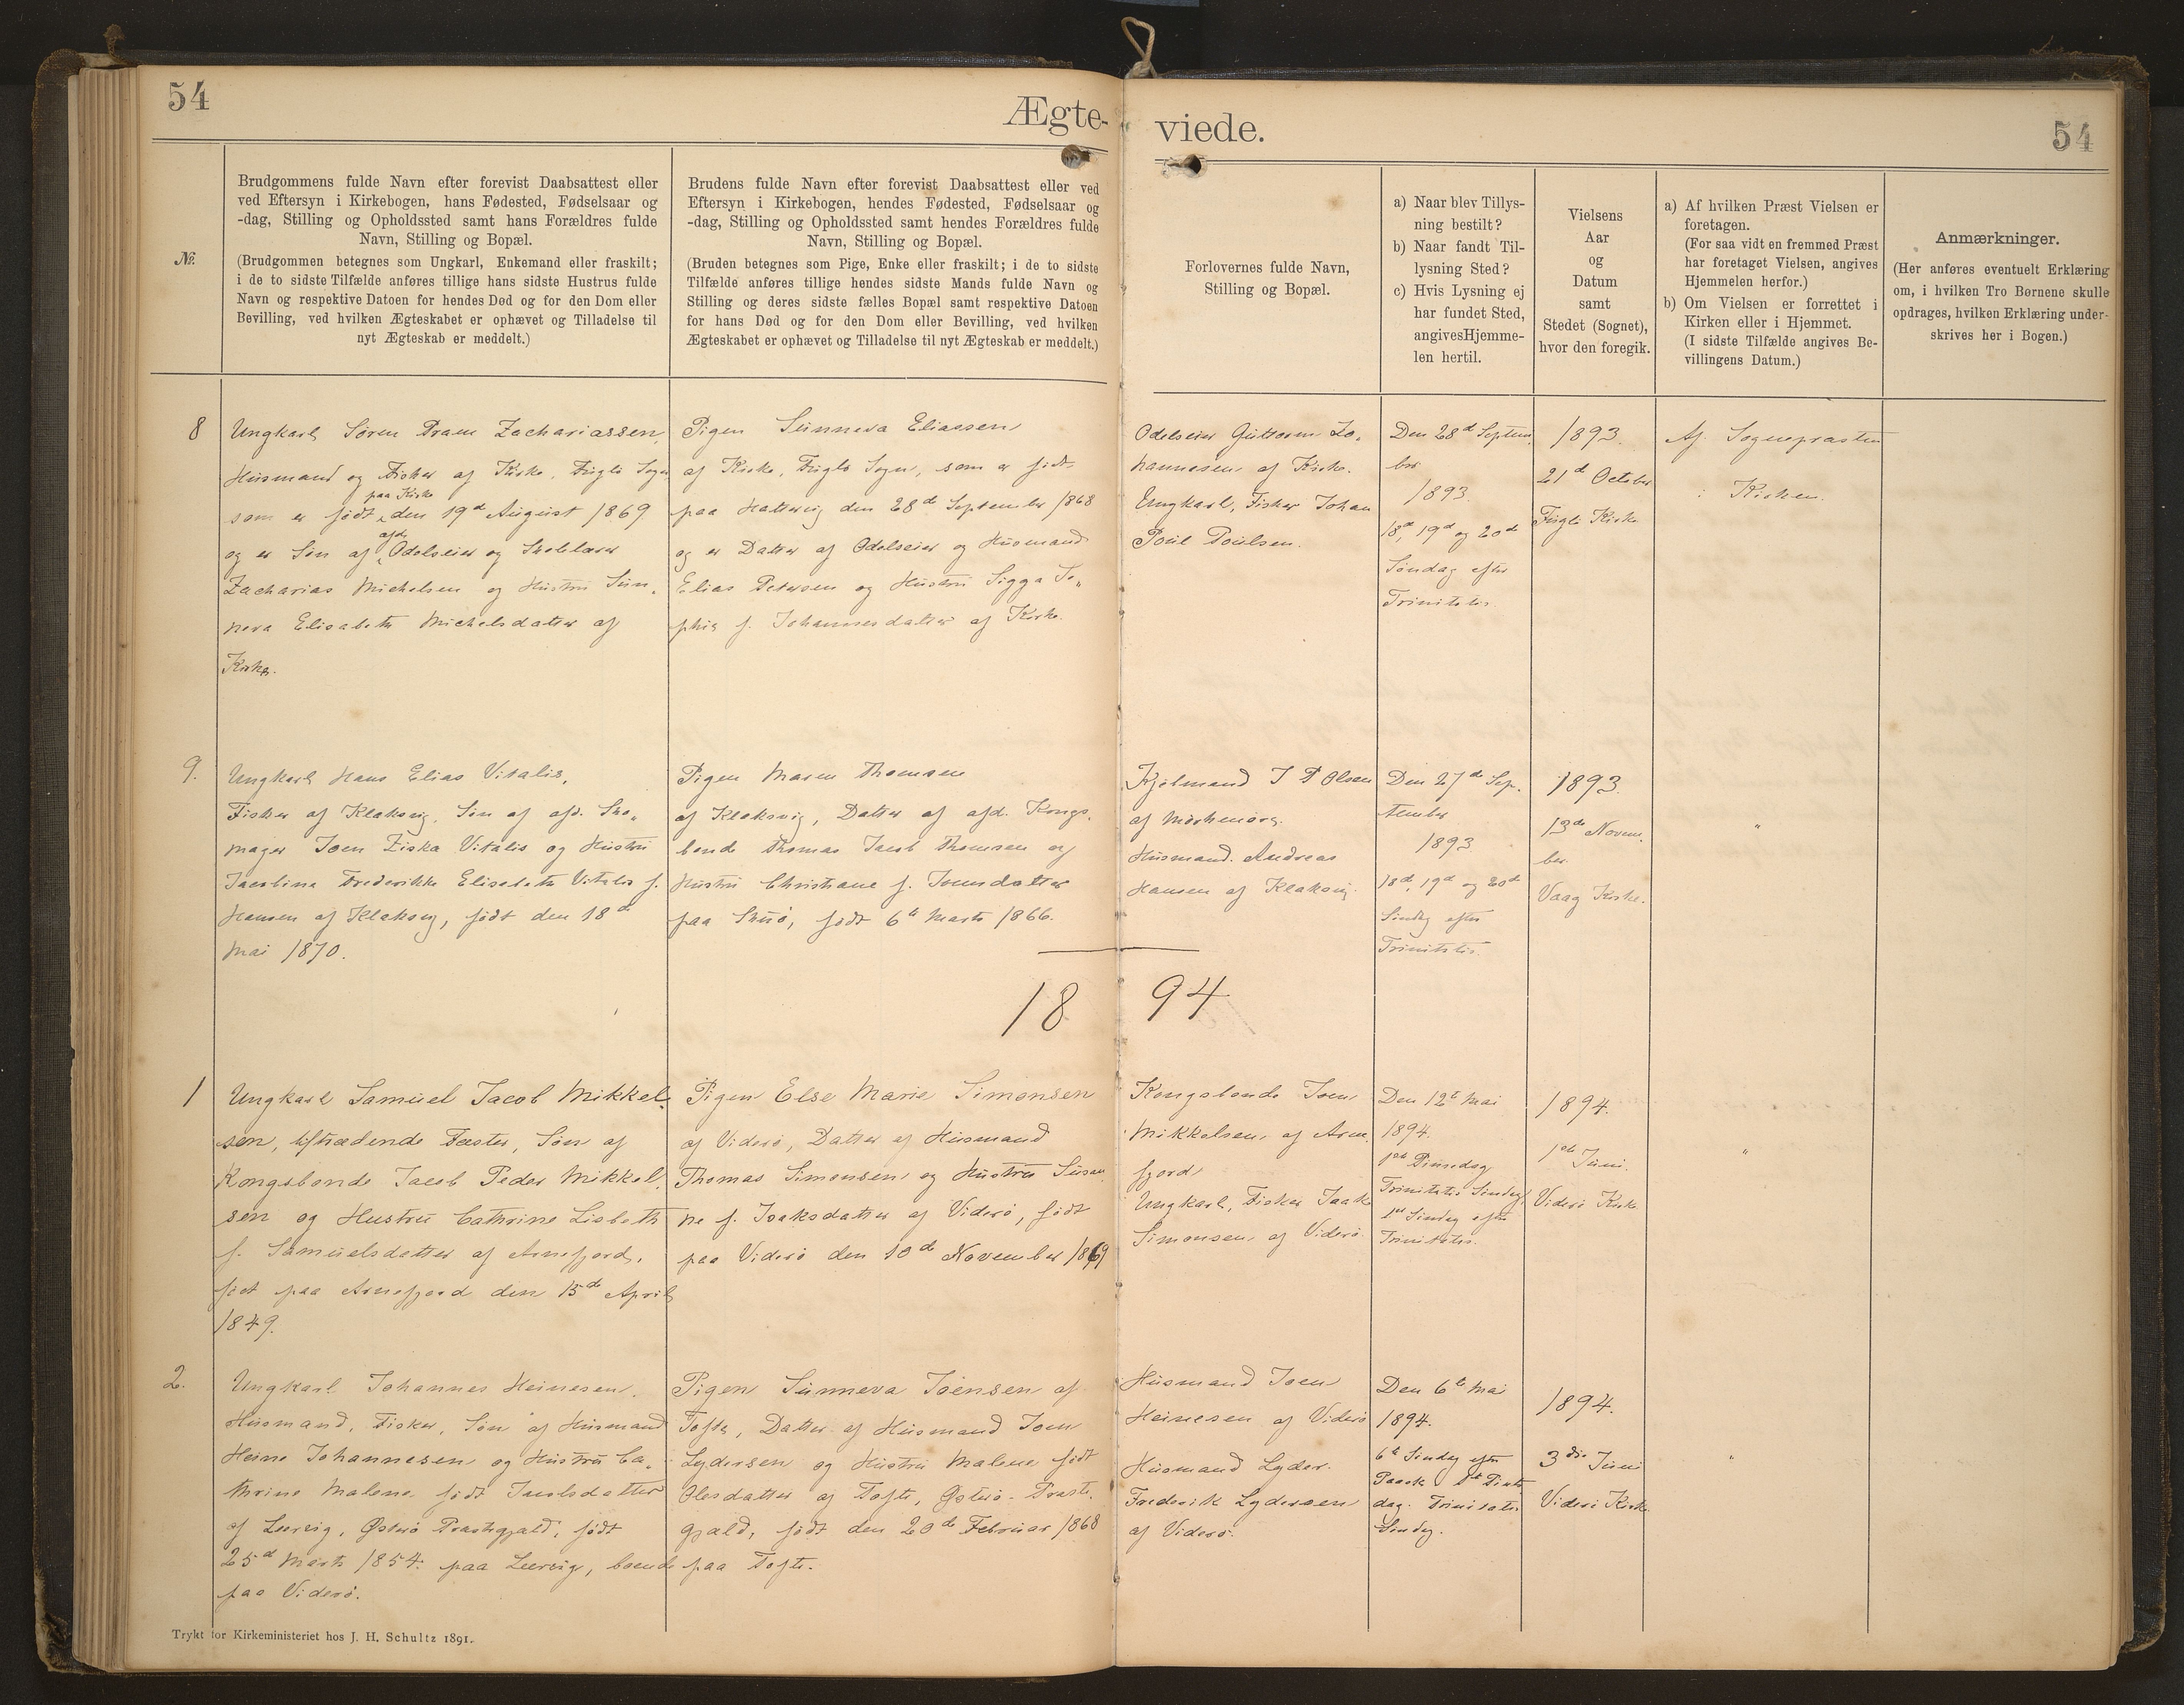 54
Ægte-
viede.
54
№.
Brudgommens fulde Navn efter forevist Daabsattest eller
ved Eftersyn i Kirkebogen, hans Fødested, Fødselsaar og
-dag, Stilling og Opholdssted samt hans Forældres fulde
Navn, Stilling og Bopæl.
(Brudgommen betegnes som Ungkarl, Enkemand eller fraskilt;
i de to sidste Tilfælde anføres tillige hans sidste Hustrus fulde
Navn og respektive Datoen for hendes Død og for den Dom eller
Bevilling, ved hvilken Ægteskabet er ophævet og Tilladelse til
nyt Ægteskab er meddelt.)
Brudens fulde Navn efter forevist Daabsattest eller ved
Eftersyn i Kirkebogen, hendes Fødested, Fødselsaar og
-dag, Stilling og Opholdssted samt hendes Forældres fulde
Navn, Stilling og Bopæl.
(Bruden betegnes som Pige, Enke eller fraskilt; i de to sidste
Tilfælde anføres tillige hendes sidste Mands fulde Navn og
Stilling og deres sidste fælles Bopæl samt respektive Datoen
for hans Død og for den Dom eller Bevilling, ved hvilken
Ægteskabet er ophævet og Tilladelse til nyt Ægteskab er meddelt.)
Forlovernes fulde Navn,
Stilling og Bopæl.
a) Naar blev Tillys-
ning bestilt?
b) Naar fandt Til-
lysning Sted?
c) Hvis Lysning ej
har fundet Sted,
angives Hjemme-
len hertil.
Vielsens
Aar
og
Datum
samt
Stedet (Sognet),
hvor den foregik.
a) Af hvilken Præst Vielsen er
foretagen.
(For saa vidt en fremmed Præst
har foretaget Vielsen, angives
Hjemmelen herfor.)
b) Om Vielsen er forrettet i
Kirken eller i Hjemmet.
(I sidste Tilfælde angives Be-
villingens Datum.)
Anmærkninger.
(Her anføres eventuelt Erklæring
om, i hvilken Tro Børnene skulle
opdrages, hvilken Erklæring under-
skrives her i Bogen.)
8
Ungkarl Søren Pram Zachariassen,
Husmand og Fisker af Kirke, Fuglø Sogn
paa Kirke
som er født den 19d August 1869
afd.
og er Søn af Odelseier og Skolelærer
Zacharias Michelsen og Hustru Sun-
neva Elisabeth Michelsdatter af
Kirke.
Pigen Sunneva Eliassen
af Kirke, Fuglø Sogn, som er født
paa Hattervig den 28d September 1868
og er Datter af Odelseier og Husmand
Elias Petersen og Hustru Sigga So-
phie f. Johannesdatter af Kirke.
Odelseier Guttorm Jo-
hannesen af Kirke.
Ungkarl, Fisker Johan
Poul Poulsen.
Den 28d Septem-
ber
1893.
18d, 19d og 20d
Søndag efter
Trinitatis
1893.
21d October
Fuglø Kirke
Af Sognepræsten
i Kirken.
9.
Ungkarl Hans Elias Vitalis,
Fisker af Klaksvig, Søn af afd. Sko-
mager Joen Ziska Vitalis og Hustru
Jacobina Frederikke Elisabeth Vitalis f.
Hansen af Klaksvig, født den 18d
Mai 1870.
Pigen Maren Thomsen
af Klaksvig, Datter af afd. Kongs-
bonde Thomas Jacob Thomsen og
Hustru Christiane f. Joensdatter
paa Skuø, født 6te Marts 1866.
Kjøbmand J P Olsen
af Mørkenøre.
Husmand Andreas
Hansen af Klaksvig.
Den 27de Sep-
tember
1893
18d, 19d og 20d
Søndag efter
Trinitatis.
1893.
13de Novem-
ber
Vaag Kirke.
"
18 94
1
Ungkarl Samuel Jacob Mikkel-
sen, tiltrædende Fæster, Søn af
Kongsbonde Jacob Peder Mikkel-
sen og Hustru Cathrine Lisbeth
f. Samuelsdatter af Arnefjord,
født paa Arnefjord den 15de April
1849.
Pigen Else Marie Simonsen
af Viderø, Datter af Husmand
Thomas Simonsen og Hustru Susan-
ne f. Isaksdatter af Viderø, født
paa Viderø den 10de November 1869
Kongsbonde Joen
Mikkelsen af Arne-
fjord
Ungkarl, Fisker Isaak
Simonsen af Viderø.
Den 12te Mai
1894.
1ste Pinsedag
Trinitatis Søndag
1ste Søndag efter
Trinitatis.
1894.
1ste Juni.
Viderø Kirke
"
2.
Ungkarl Johannes Heinesen,
Husmand, Fisker, Søn af Husmand
Heine Johannesen og Hustru Ca-
thrine Malene født Jacobsdatter
af Leervig, Østerø Præstegjæld, født
25d Marts 1854 paa Leervig, boende
paa Viderø.
Pigen Sunneva Joensen af
Tofte, Datter af Husmand Joen
Lydersen og Hustru Malene født
Olesdatter af Tofte, Østerø Præste-
gjæld, født den 20de Februar 1868
paa Tofte.
Husmand Joen
Heinesen af Viderø
Husmand Lyder
Frederik Lydersen
af Viderø.
Den 6te Mai
1894.
6te Søndag efter
Paask 1ste Pintse
dag. Trinitatis
Søndag.
1894.
3die Juni
Viderø Kirke.
"
Trykt for Kirkeministeriet hos J. H. Schultz 1891.